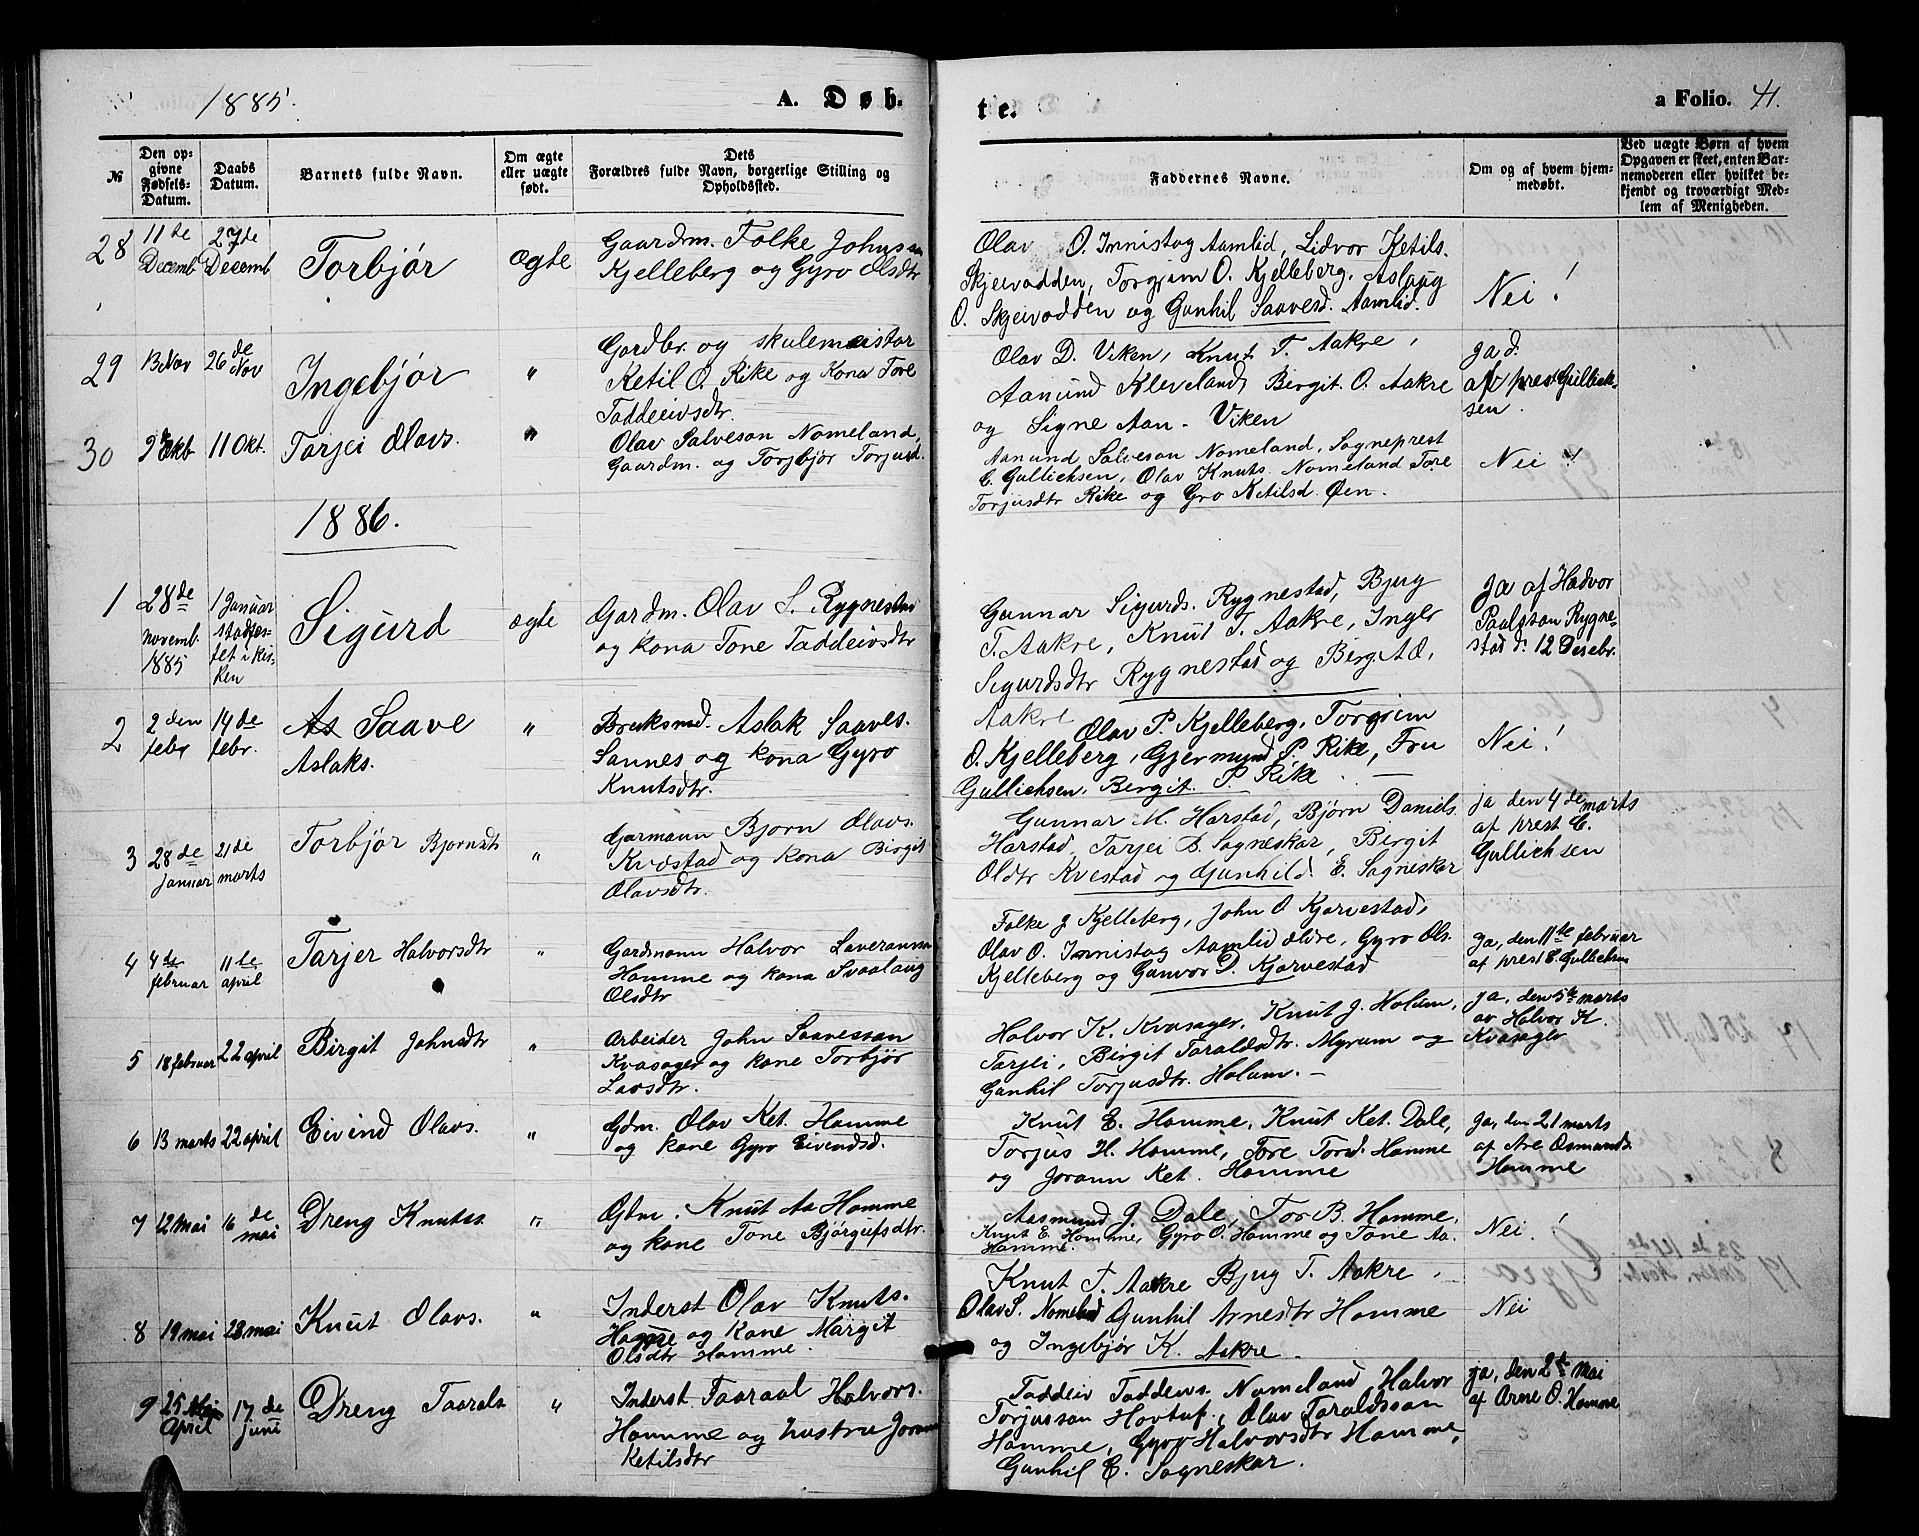 1885.
A. Døb-
te.
a Folio. 41.
№
Den op-
givne
Fødsels-
Datum.
Daabs
Datum.
Barnets fulde Navn.
Om ægte
eller uægte
født.
Dets
Forældres fulde Navn, borgerlige Stilling og
Opholdssted.
Faddernes Navne.
Om og af hvem hjem-
medøbt.
Ved uægte Børn af hvem
Opgaven er skeet, enten Bar-
nemoderen eller hvilket be-
kjendt og troværdigt Med-
lem af Menigheden.
28
11 de
Decemb
27 de
Decemb
Torbjør
ægte
Gaardm. Folke Johnsen
Kjelleberg og Gyro Olsdtr
Olav O. Innistog Aamlid, Lidvor Ketils.
Skjevodden, Torgrim O. Kjelleberg, Aslaug
O. Skjeivodden og Gunhil Saavesd. Aamlid.
Nei!
29
13 Nov
26 de
Nov
Ingebjør
"
Gardbr. og skulemeistar
Ketil O. Rike og Kona Tore
Taddeivsdtr.
Olav D. Viken, Knut T. Aakre,
Aanund Kleveland, Bergit O. Aakre
og Signe Aan. Viken
ja d.
af prest Gullich-
sen.
30
11 Okt.
Tarjei Olavs.
"
Olav Salveson Nomeland,
Gaardm. og Torbjør Torjusd.
Aanund Salveson Nomeland, Sogneprest
C. Gullichsen, Olav Knuts. Nomeland Tore
Torjusdtr Rike og Gro Ketilsd. Øen.
Nei!
1886.
1
28 de
novemb.
1885
1 Januar
stadfæs-
tet i kir-
ken
Sigurd
ægte
Gardm. Olav S. Rygnestad
og kona Tone Taddeivsdtr
Gunnar Sigurds. Rygnestad, Bjug
T. Aakre, Knut T. Aakre, Inger
Sigurdsdtr Rygnestad og Berg. A. O.
Aakre
Ja af Hædvor
Paalsson Rygne-
stad d. 12 Desebr.
2
2 den
febr
14 de
febr.
As Saave
Aslaks.
"
Bruksmd. Aslak Saaves.
Sannes og kona Gyro
Knutsdtr.
Olav P. Kjelleberg, Torgrim
O. Kjelleberg, Gjermund P. Rike, Fru
Gullichsen, Bergit P. Rike
Nei!
3
28 de
Januar
21 de
marts
Torbjør Bjornsdt
"
Garmann Bjorn Olavs.
Kvestad og kona Birgit
Olavsdtr.
Gunnar M. Harstad, Bjørn Daniels
Harstad, Tarjei B. Sagneskar, Bergit
Oldtr Kvestad og Gunhild E. Sagneskar
ja den 4 de marts
af prest C.
Gullichsen
4
4 de
februar
11 te
april
Tarjer Halvorsdtr
"
Gardmann Halvor Laveransen
Homme og kona Svaalaug
Olsdtr
Folke J Kjelleberg, John O Kjorvestad,
Olav O. Innistog Aamlid ældre, Gyro Ols.
Kjelleberg og Gunvor D. Kjorvestad
Ja, den 11 te februar
af prest C. Gullichsen
5
18 februar
22 april
Birgit Johnsdtr
"
Arbeider John Saavessan
Kvasager og kone Torbjør
Lavsdtr.
Halvor K. Kvasager, Knut J. Holum,
Tarjei, Birgit Taraldsdtr. Myrum og
Gunhil Torjusdtr. Holum.
ja, den 5 te marts
av Halvor K.
Kvasager
6
13 marts
22 april
Eivind Olavs.
"
Gdm. Olav Ket. Homme
og kone Gyro Eivendsd.
Knut E. Homme, Knut Ket. Dale,
Torjus H. Homme, Tore Tord. Homme
og Jorann Ket. Homme
Ja, den 21 marts
af Are Osmunds.
Homme
7
12 mai
16 de
mai
Dreng Knutss.
"
Gdm. Knut Aa Homme
og kone Tone Bjørgufsdtr.
Aasmund J. Dale, Tor B. Homme,
Knut E. Homme, Gyro O. Homme og Tone Aa.
Homme.
Nei!
8
19 mai
23 mai
Knut Olavs.
"
Inderst Olav Knuts.
Homme og Kone Margit
Olsdtr Homme.
Knut T. Aakre Bjug T. Aakre,
Olav S. Nomeland Gunhil Arnesdtr Homme
og Ingebjør K. Aakre.
Nei
9
25 Mai
April
17. de
Juni
Dreng Taarals
"
Inderst Taaraal Halvors.
Homme og hustru Joran
Ketilsdtr
Taddeiv Taddeivs. Nomeland Halvor
Torjussan Hovtuf, Olav Taraldssan
Homme, Gyro Halvorsdtr Homme,
Gunhil E. Sagneskar.
ja, den 2 de Mai
af Arne O. Homme